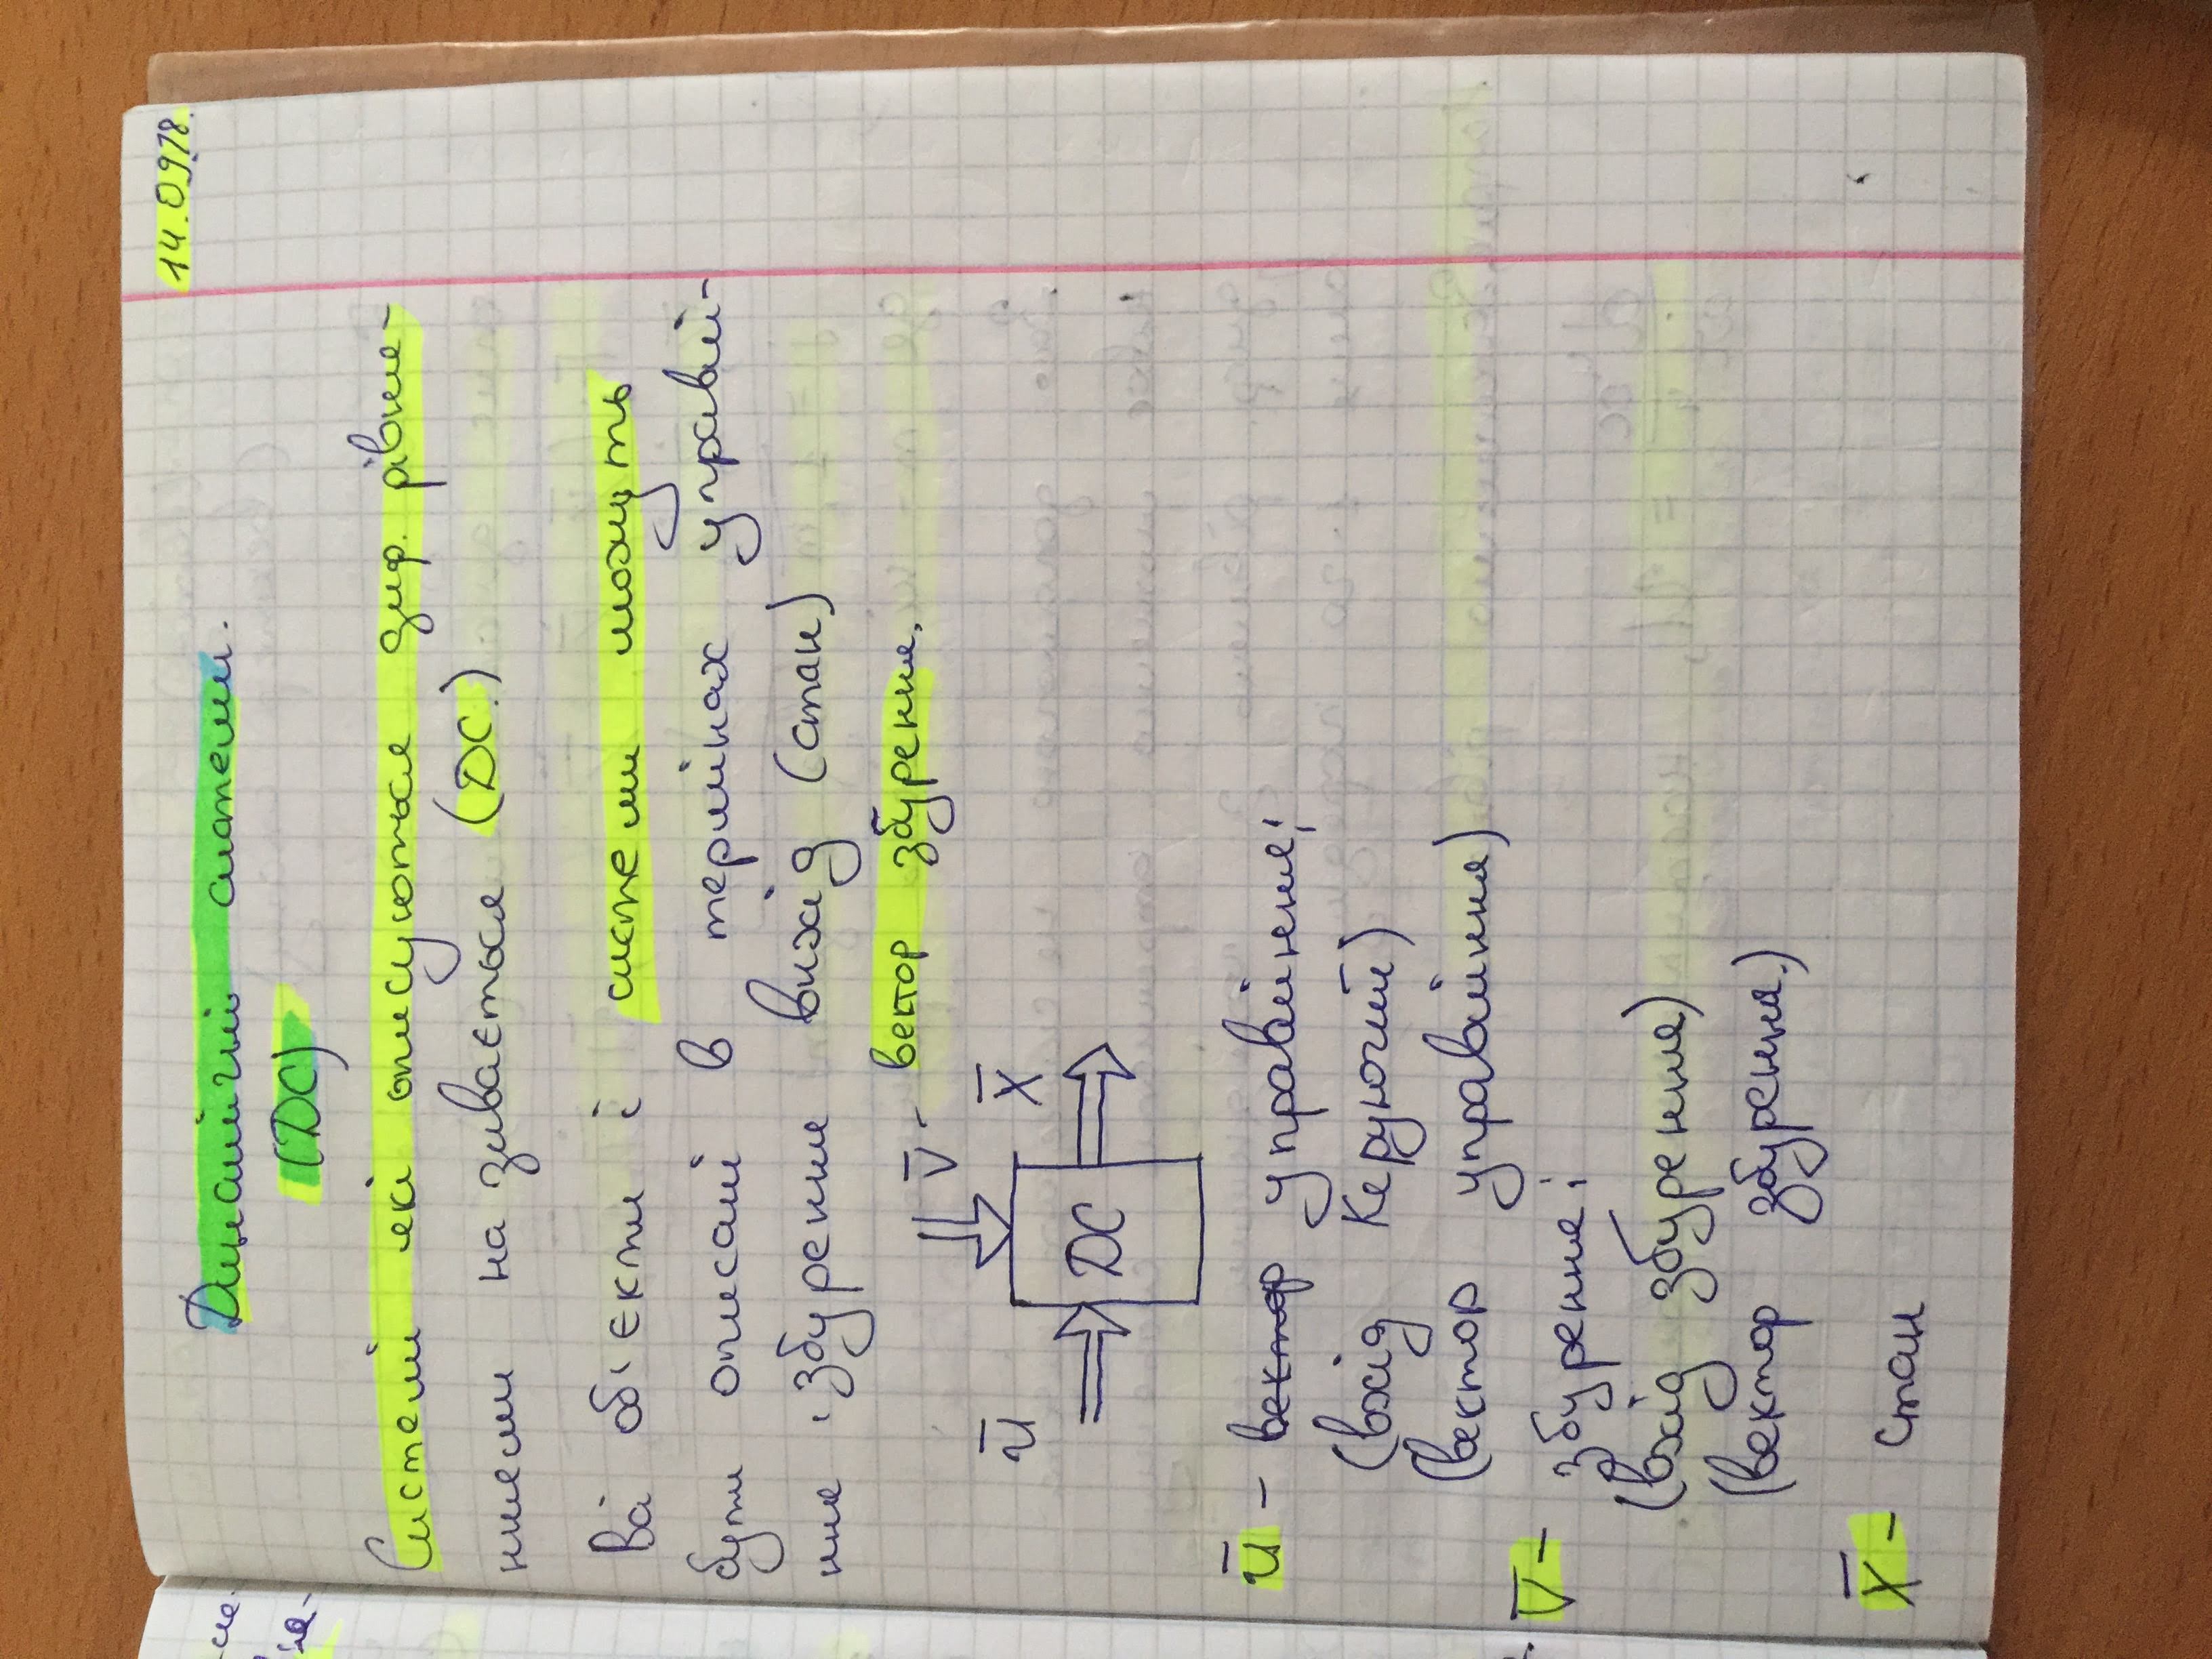 14.09.18.
Динамічні системи.
(ДС)
Системи які описуються диф. рівня-
ннями називається (ДС.)
Всі об'єкти і системи можуть
бути описані в термінах управлі-
ння, збурення вихід (стан)
V̅ - вектор збурення.
U̅
X̅
ДС
U̅ - вектор управління;
(вхід керуючий)
(вектор управління)
V̅ - збурення;
(вхід збурення)
(вектор збурення.)
X̅ - стан